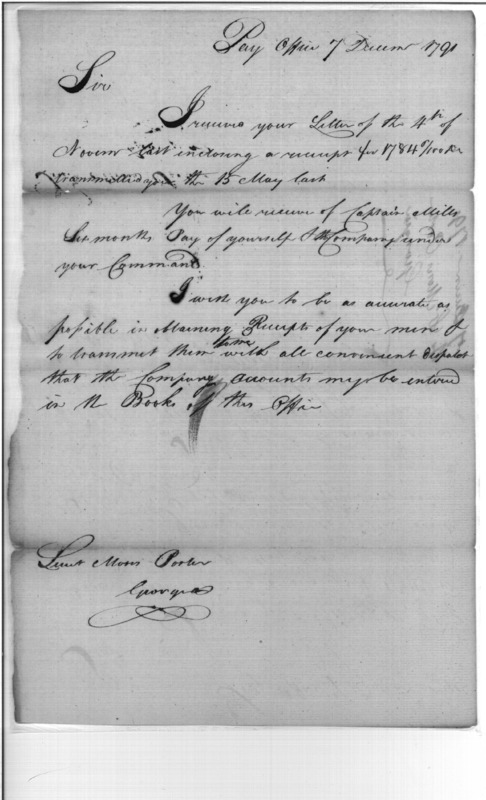 Pay Office 7 Decemr 1791
Sir
I receive your Letter of the 4th of
Novemr last inclosing a receipt for 1784
transmitted you the 15 May last
You will receive of Captain Mills
Six months Pay of yourself & the Company under
your Command
I wish you to be as accurate as
possible in obtaining Receipts of your men &
to transmet them to me with all convenient despatch
that the Company accounts may be entered
in the Books of this Office
Lieut Moses Porter
Georgia